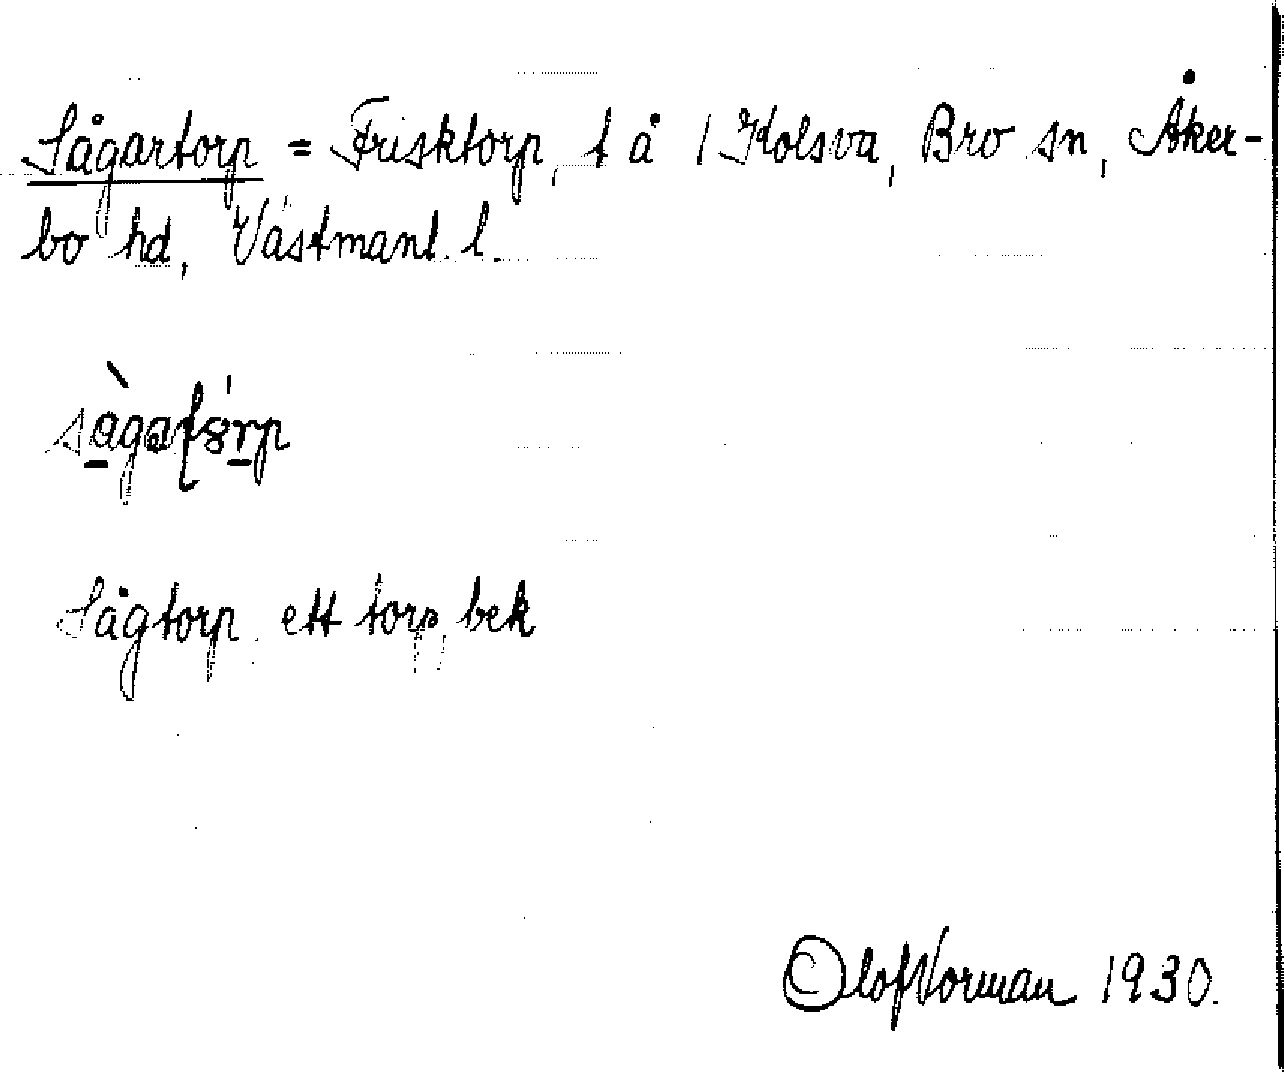 Sågartorp = Frisktorp, t å 1 Kolsva, Bro sn, Åker-
bo hd, Västmanl. l.
Sågtorp, ett torp, bek
Olof Norman 1930.